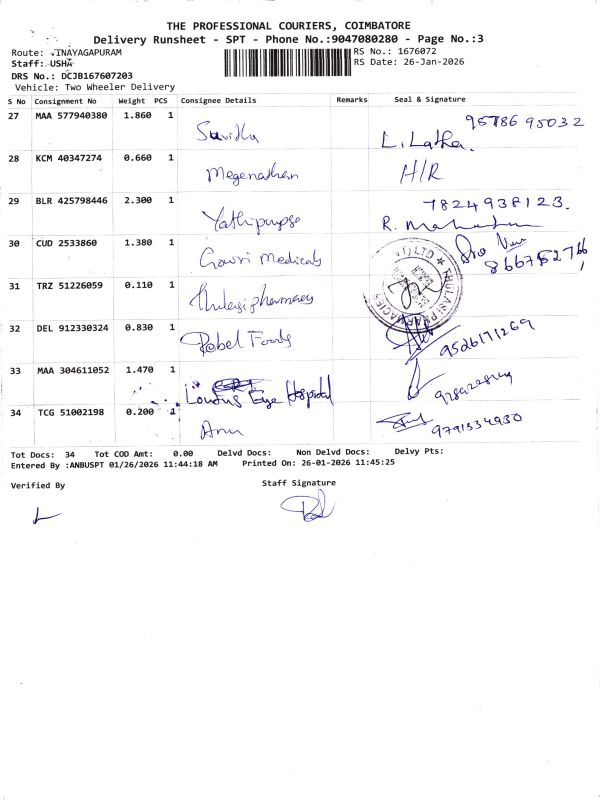 THE PROFESSIONAL COURIERS, COIMBATORE
Delivery Runsheet - SPT - Phone No.:9047080280 - Page No.:3
Route: VINAYAGAPURAM
Staff: USHA
DRS No.: DCJB167607203
Vehicle: Two Wheeler Delivery
RS No.: 1676072
RS Date: 26-Jan-2026
S No Consignment No Weight PCS Consignee Details Remarks Seal & Signature
27 MAA 577940380 1.860 1 Suvidha L. Latha. 95786 95032
28 KCM 40347274 0.660 1 Megenathan H/R
29 BLR 425798446 2.300 1 R.
30 CUD 2533860 1.380 1 Gowri Medicals
31 TRZ 51226059 0.110 1 Thulasi pharmacy
THULASI PHARMACIES LTD
32 DEL 912330324 0.830 1 Rebel Foods 9526171269
33 MAA 304611052 1.470 1 Lowtus Eye Hospital
34 TCG 51002198 0.200 1 Arun 9791534930
Tot Docs: 34 Tot COD Amt: 0.00 Delvd Docs: Non Delvd Docs: Delvy Pts:
Entered By :ANBUSPT 01/26/2026 11:44:18 AM Printed On: 26-01-2026 11:45:25
Verified By Staff Signature